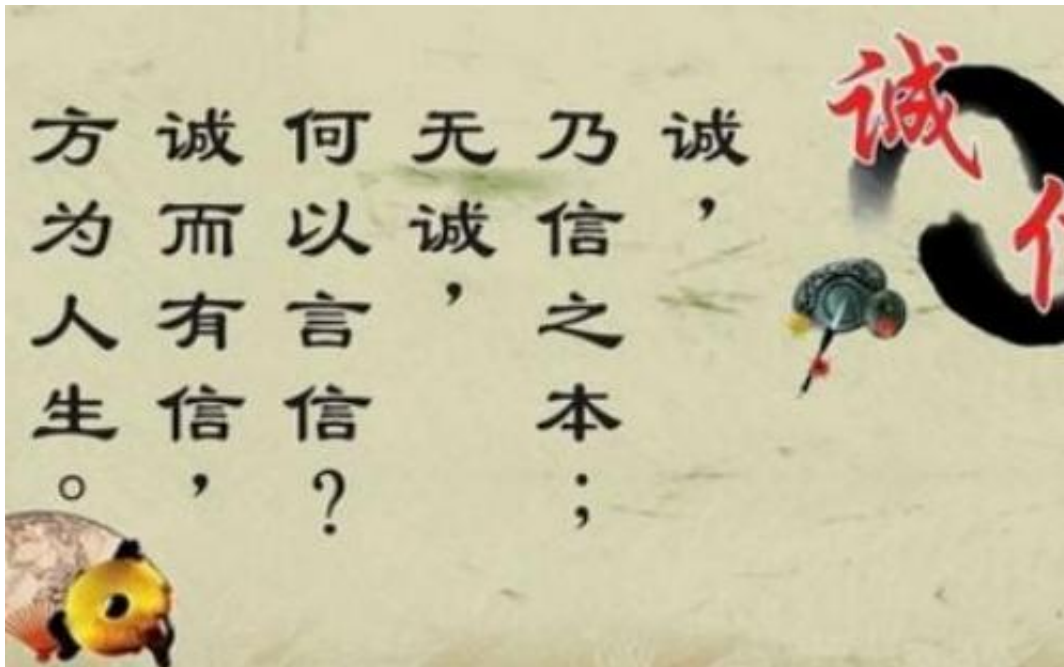 诚
诚，
乃信之本；
无诚，
何以言信？
诚而有信，
方为人生。